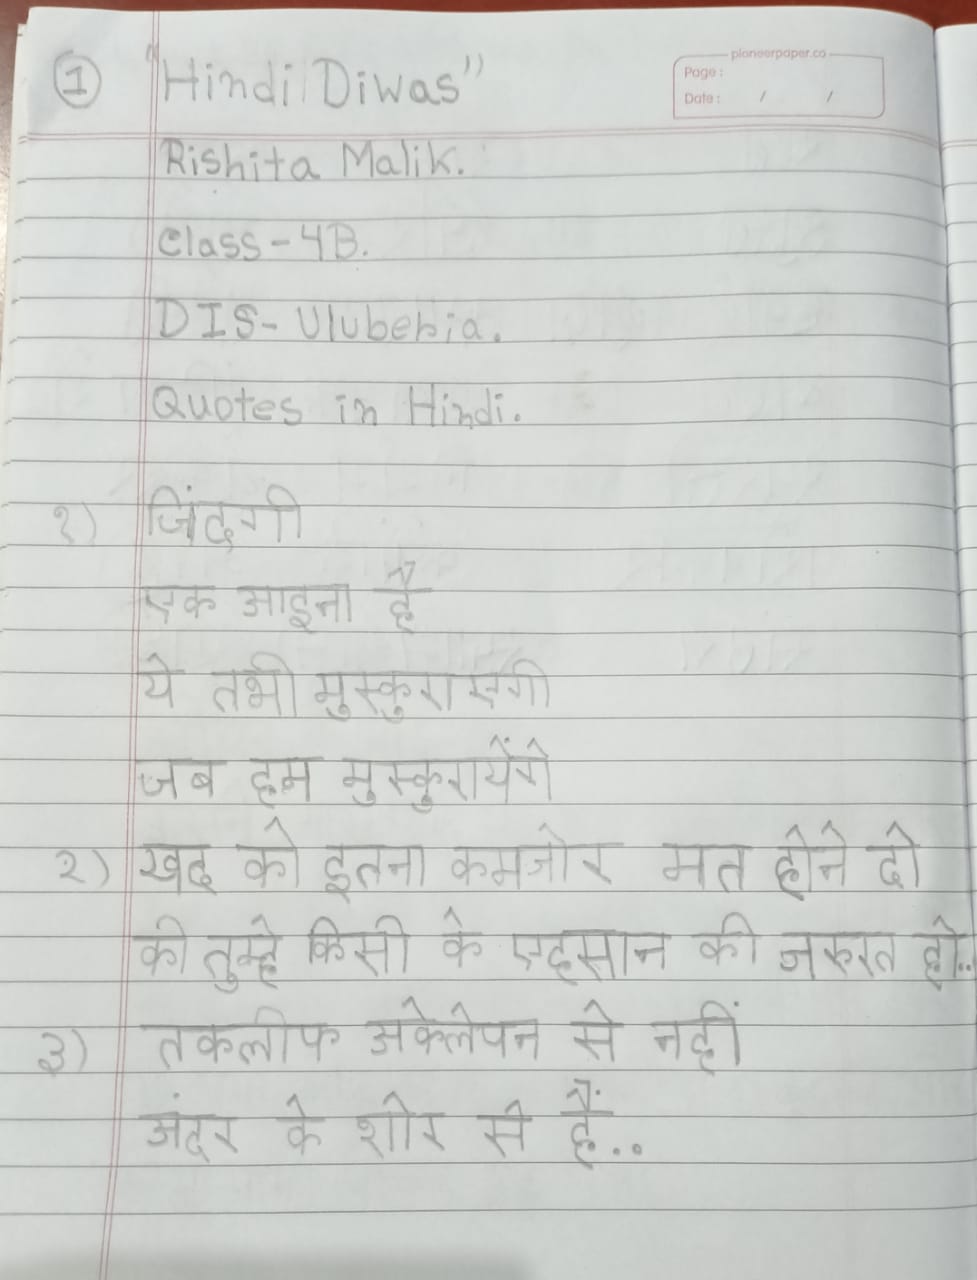 ① "Hindi Diwas"
pioneerpaper.co
Page :
Date : / /
Rishita Malik.
Class - 4B.
DIS - Uluberia.
Quotes in Hindi.
१) जिंदगी
एक आइना है
ये तभी मुस्कुराएगी
जब हम मुस्कुरायेंगे
२) खुद को इतना कमजोर मत होने दो
की तुम्हे किसी के एहसान की जरूरत हो..
३) तकलीफ अकेलेपन से नहीं
अंदर के शोर से हैं..